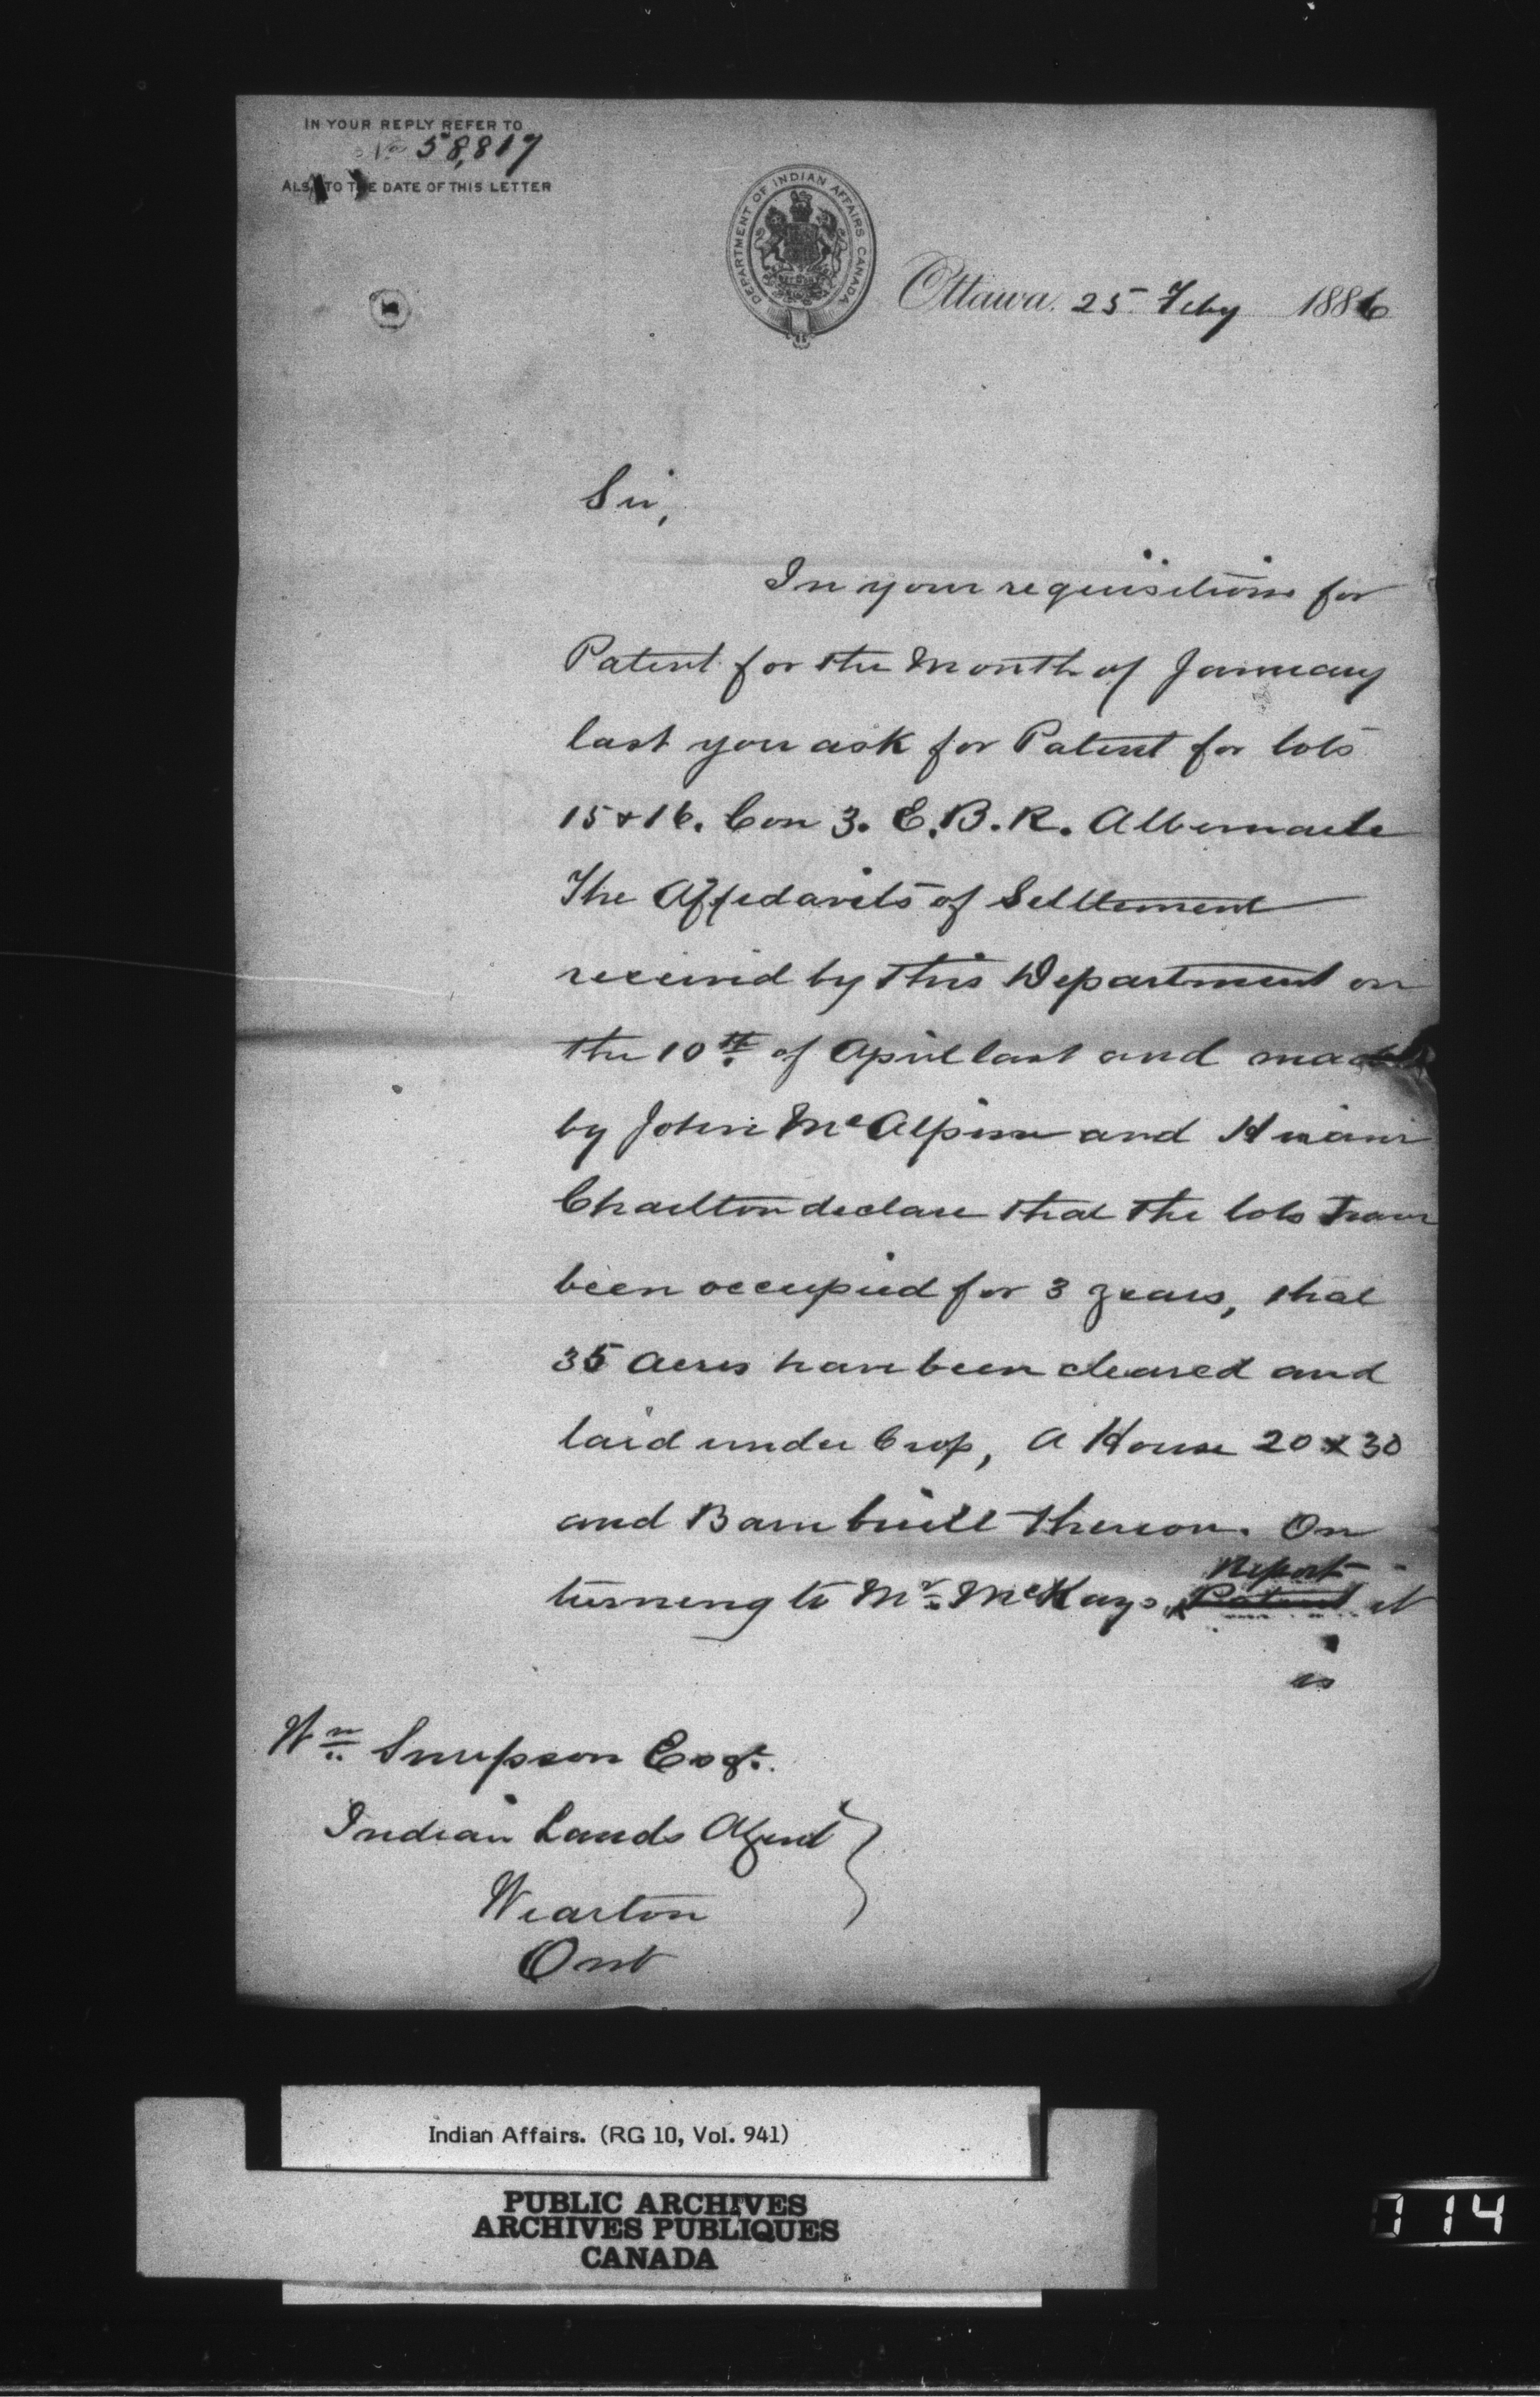 IN YOUR REPLY REFER TO
No 58,817
ALSO TO THE DATE OF THIS LETTER
DEPARTMENT OF INDIAN AFFAIRS CANADA
Ottawa. 25 Feby 1886
Sir,
In your requisitions for
Patent for the Month of January
last you ask for Patent for lots
15 & 16. Con 3. E.B.R. Albemarle
The Affidavits of Settlement
received by this Department on
the 10th of April last and made
by John McAlpine and Hiram
Charlton declare that the lots have
been occupied for 3 years, that
35 acres have been cleared and
laid under Crop, a House 20 x 30
and Barn built thereon. On
Report
turning to Mr. McKays Patent it
is
Wm Simpson Esqr.
Indian Lands Agent
Wiarton
Ont
Indian Affairs. (RG 10, Vol. 941)
PUBLIC ARCHIVES
ARCHIVES PUBLIQUES
CANADA
114